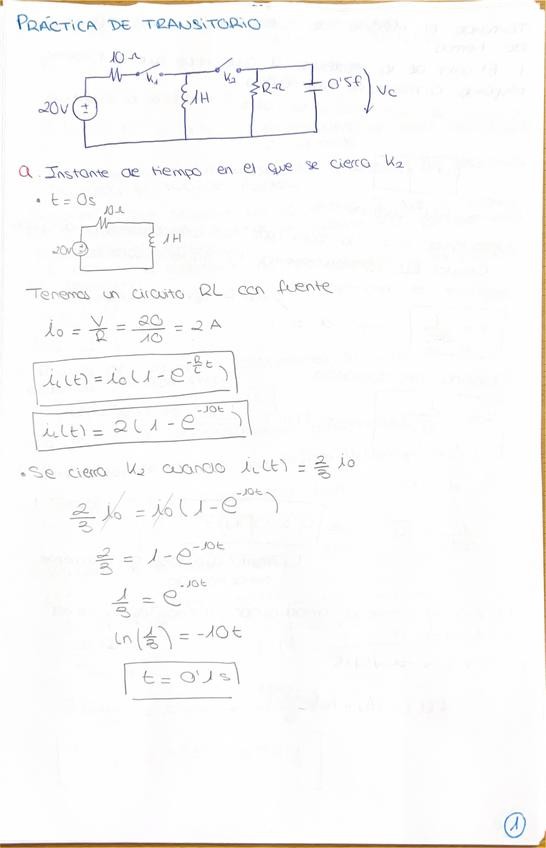 PRÁCTICA DE TRANSITORIO
10Ω
K1
K2
20V
1H
R-Ω
0'5f
Vc
a. Instante de tiempo en el que se cierra K2
• t = 0s
10Ω
20V
1H
Tenemos un circuito RL con fuente
i0 = V/R = 20/10 = 2 A
iL(t) = i0 (1 - e^(-R/L t))
iL(t) = 2 (1 - e^(-10t))
• Se cierra K2 cuando iL(t) = 2/3 i0
2/3 i0 = i0 (1 - e^(-10t))
2/3 = 1 - e^(-10t)
1/3 = e^(-10t)
ln(1/3) = -10t
t = 0'1s
1